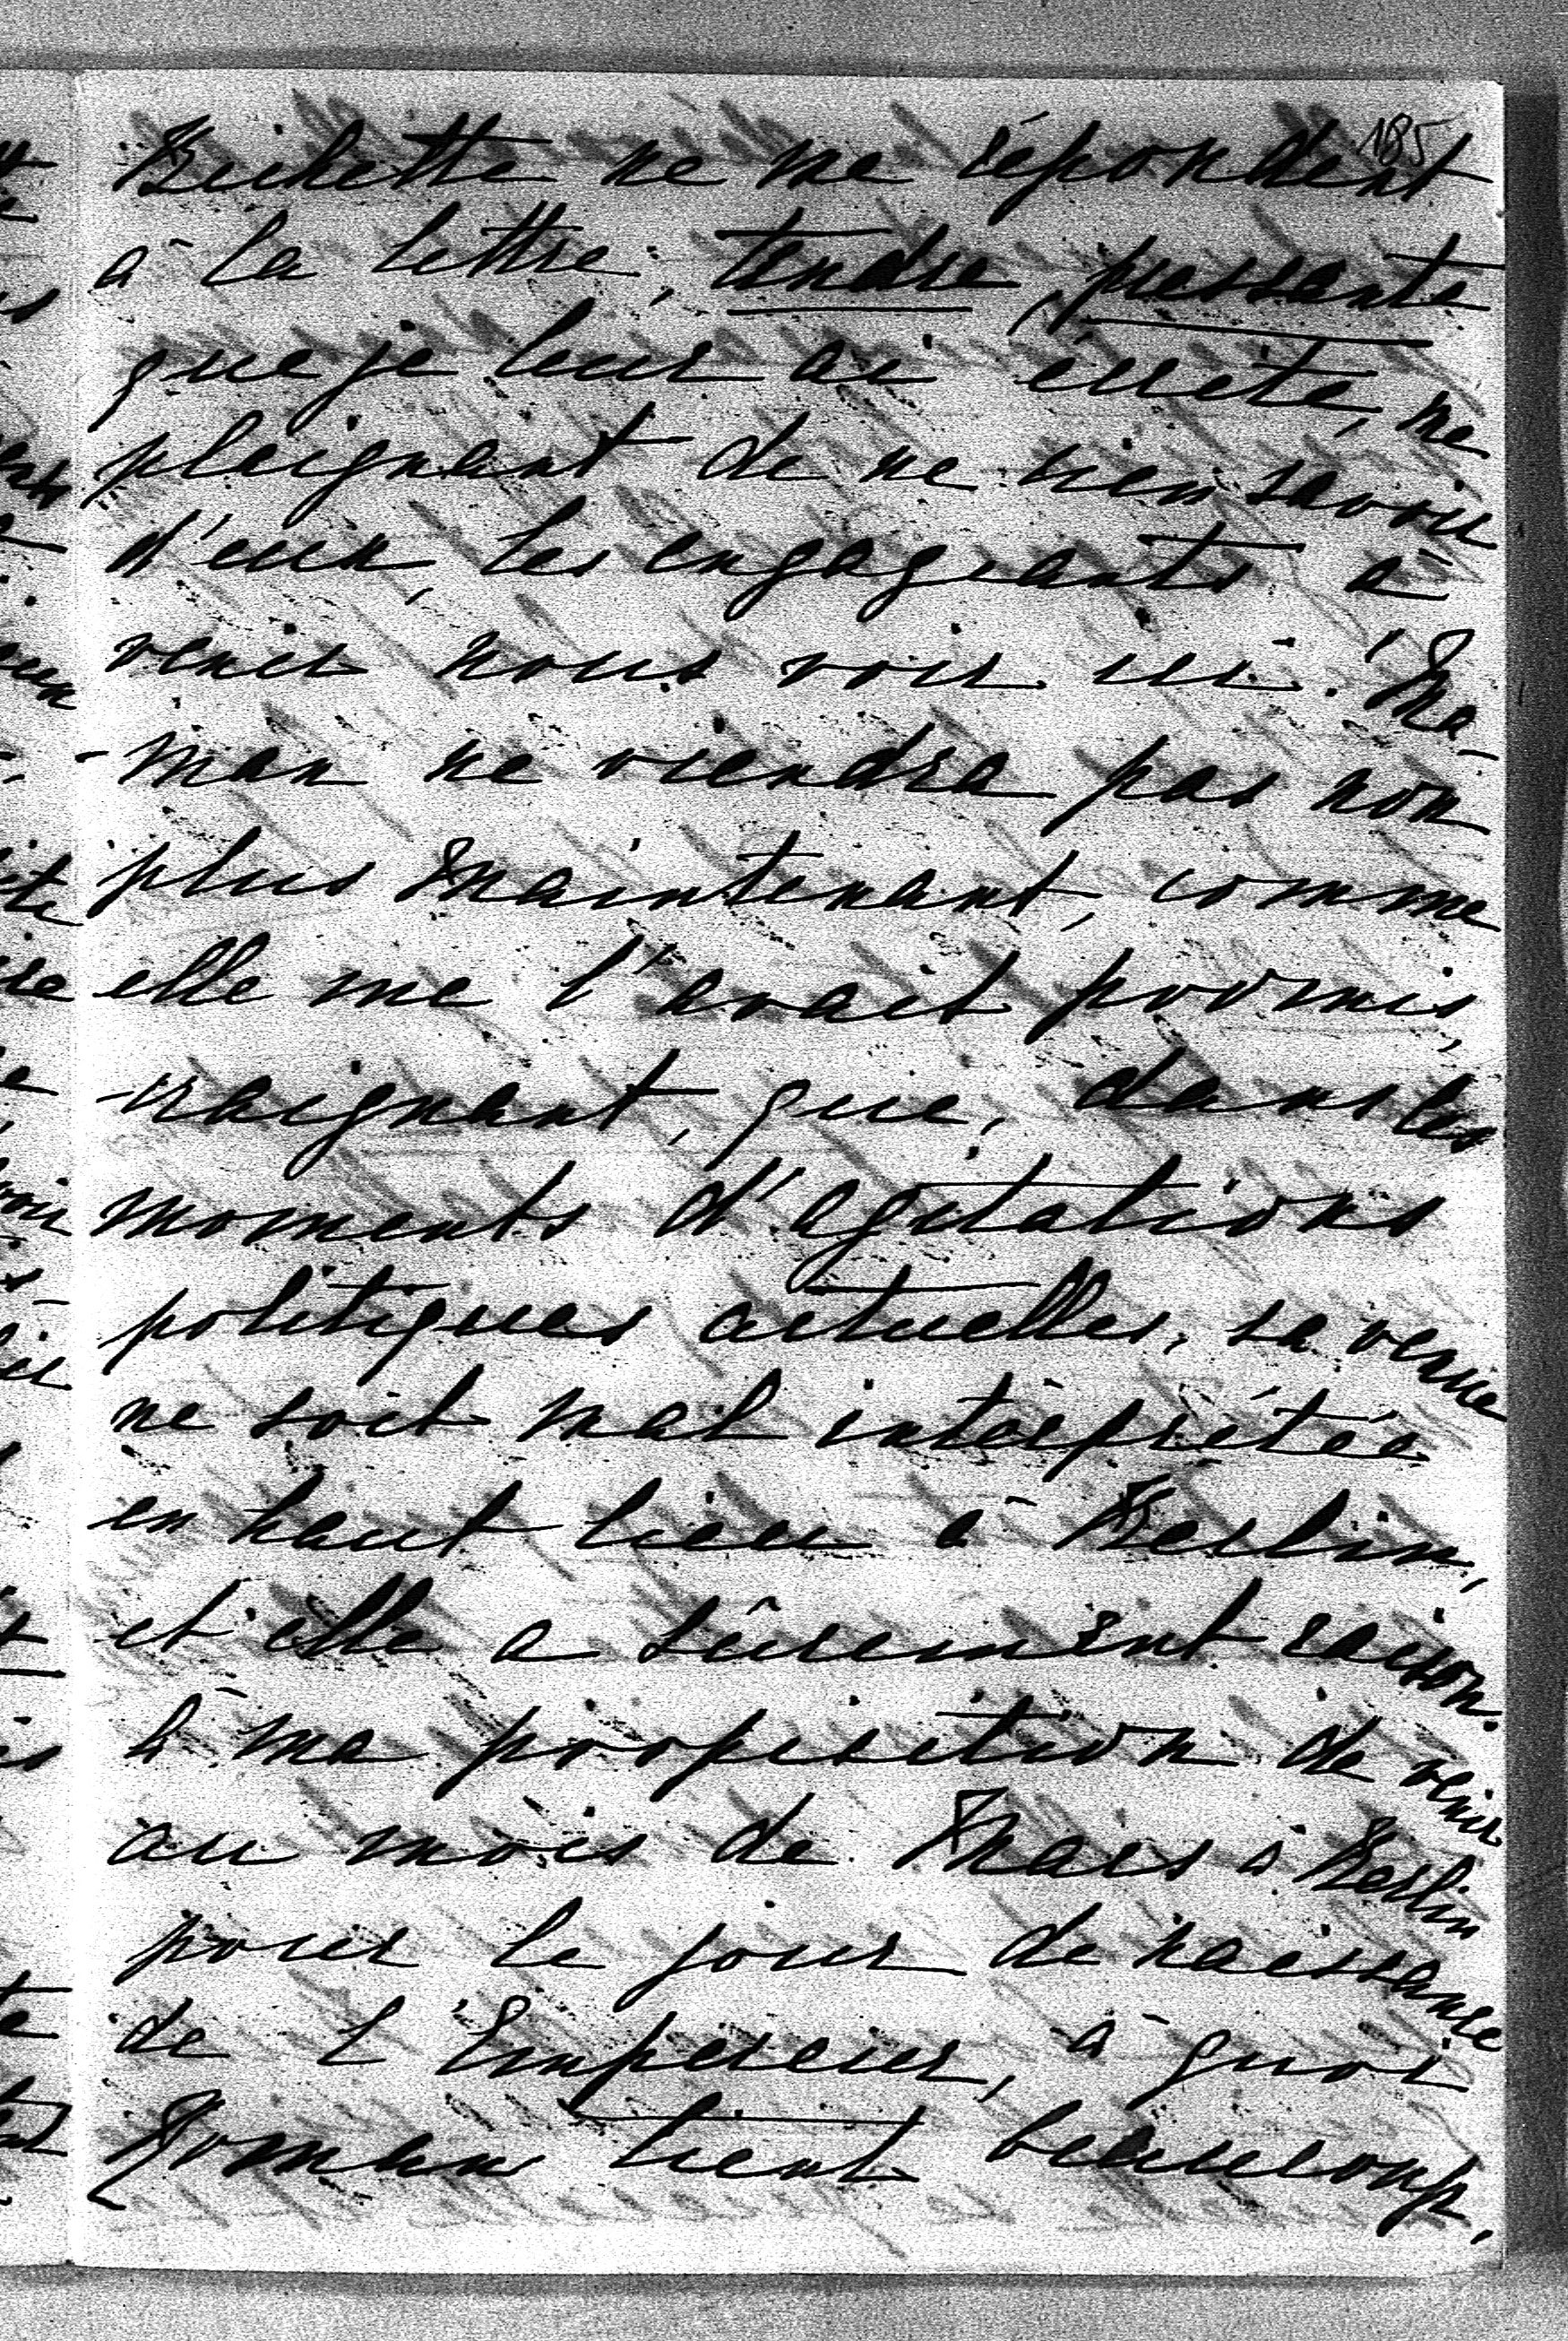 185
Bichette ne me répondent
à la lettre, tendre, pressante
que je leur ai écrite, me
plaignant de ne rien savoir
d'eux, les engageants à
venir nous voir ici. Ma-
-man ne viendra pas non
plus Maintenant, comme
elle me l'avait promis,
craignant, que, dans les
moments d'agitations
politiques actuelles, sa venue
ne soit mal interprétée
en haut lieu à Berlin,
et elle a sûrement raison.
à ma proposition de venir
au mois de Mars à Berlin
pour le jour de naissance
de l'Empereur, à quoi
Roman tient beaucoup,